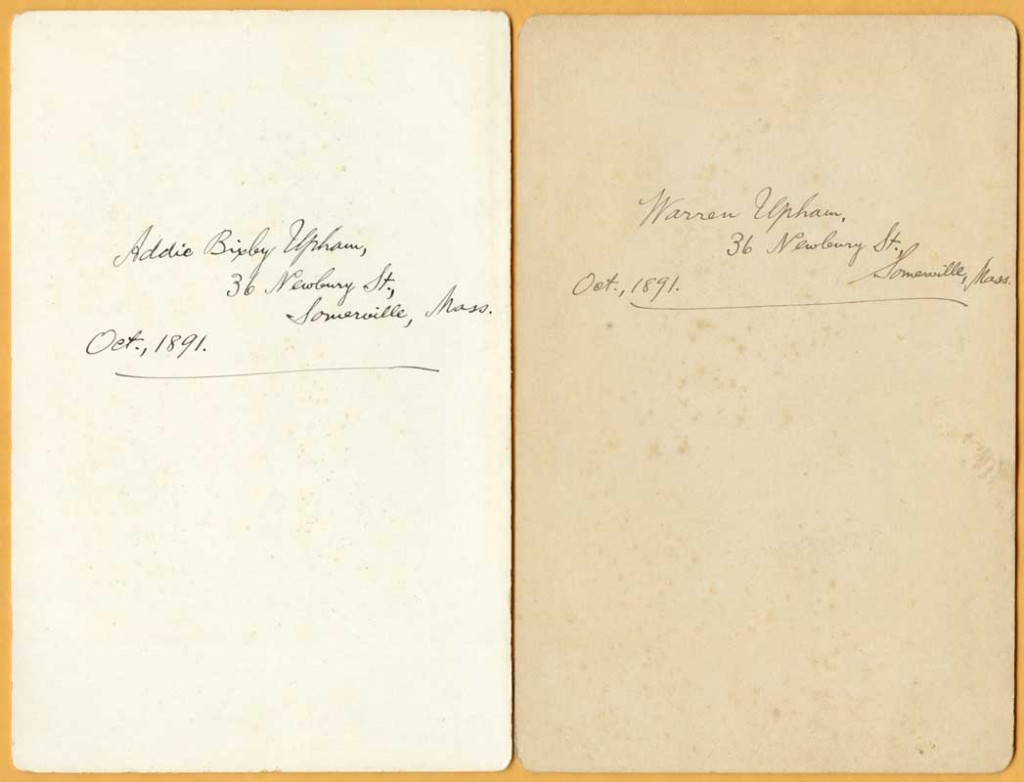 Addie Bixby Upham,
36 Newbury St.,
Somerville, Mass.
Oct., 1891.
Warren Upham,
36 Newbury St.,
Somerville, Mass.
Oct., 1891.